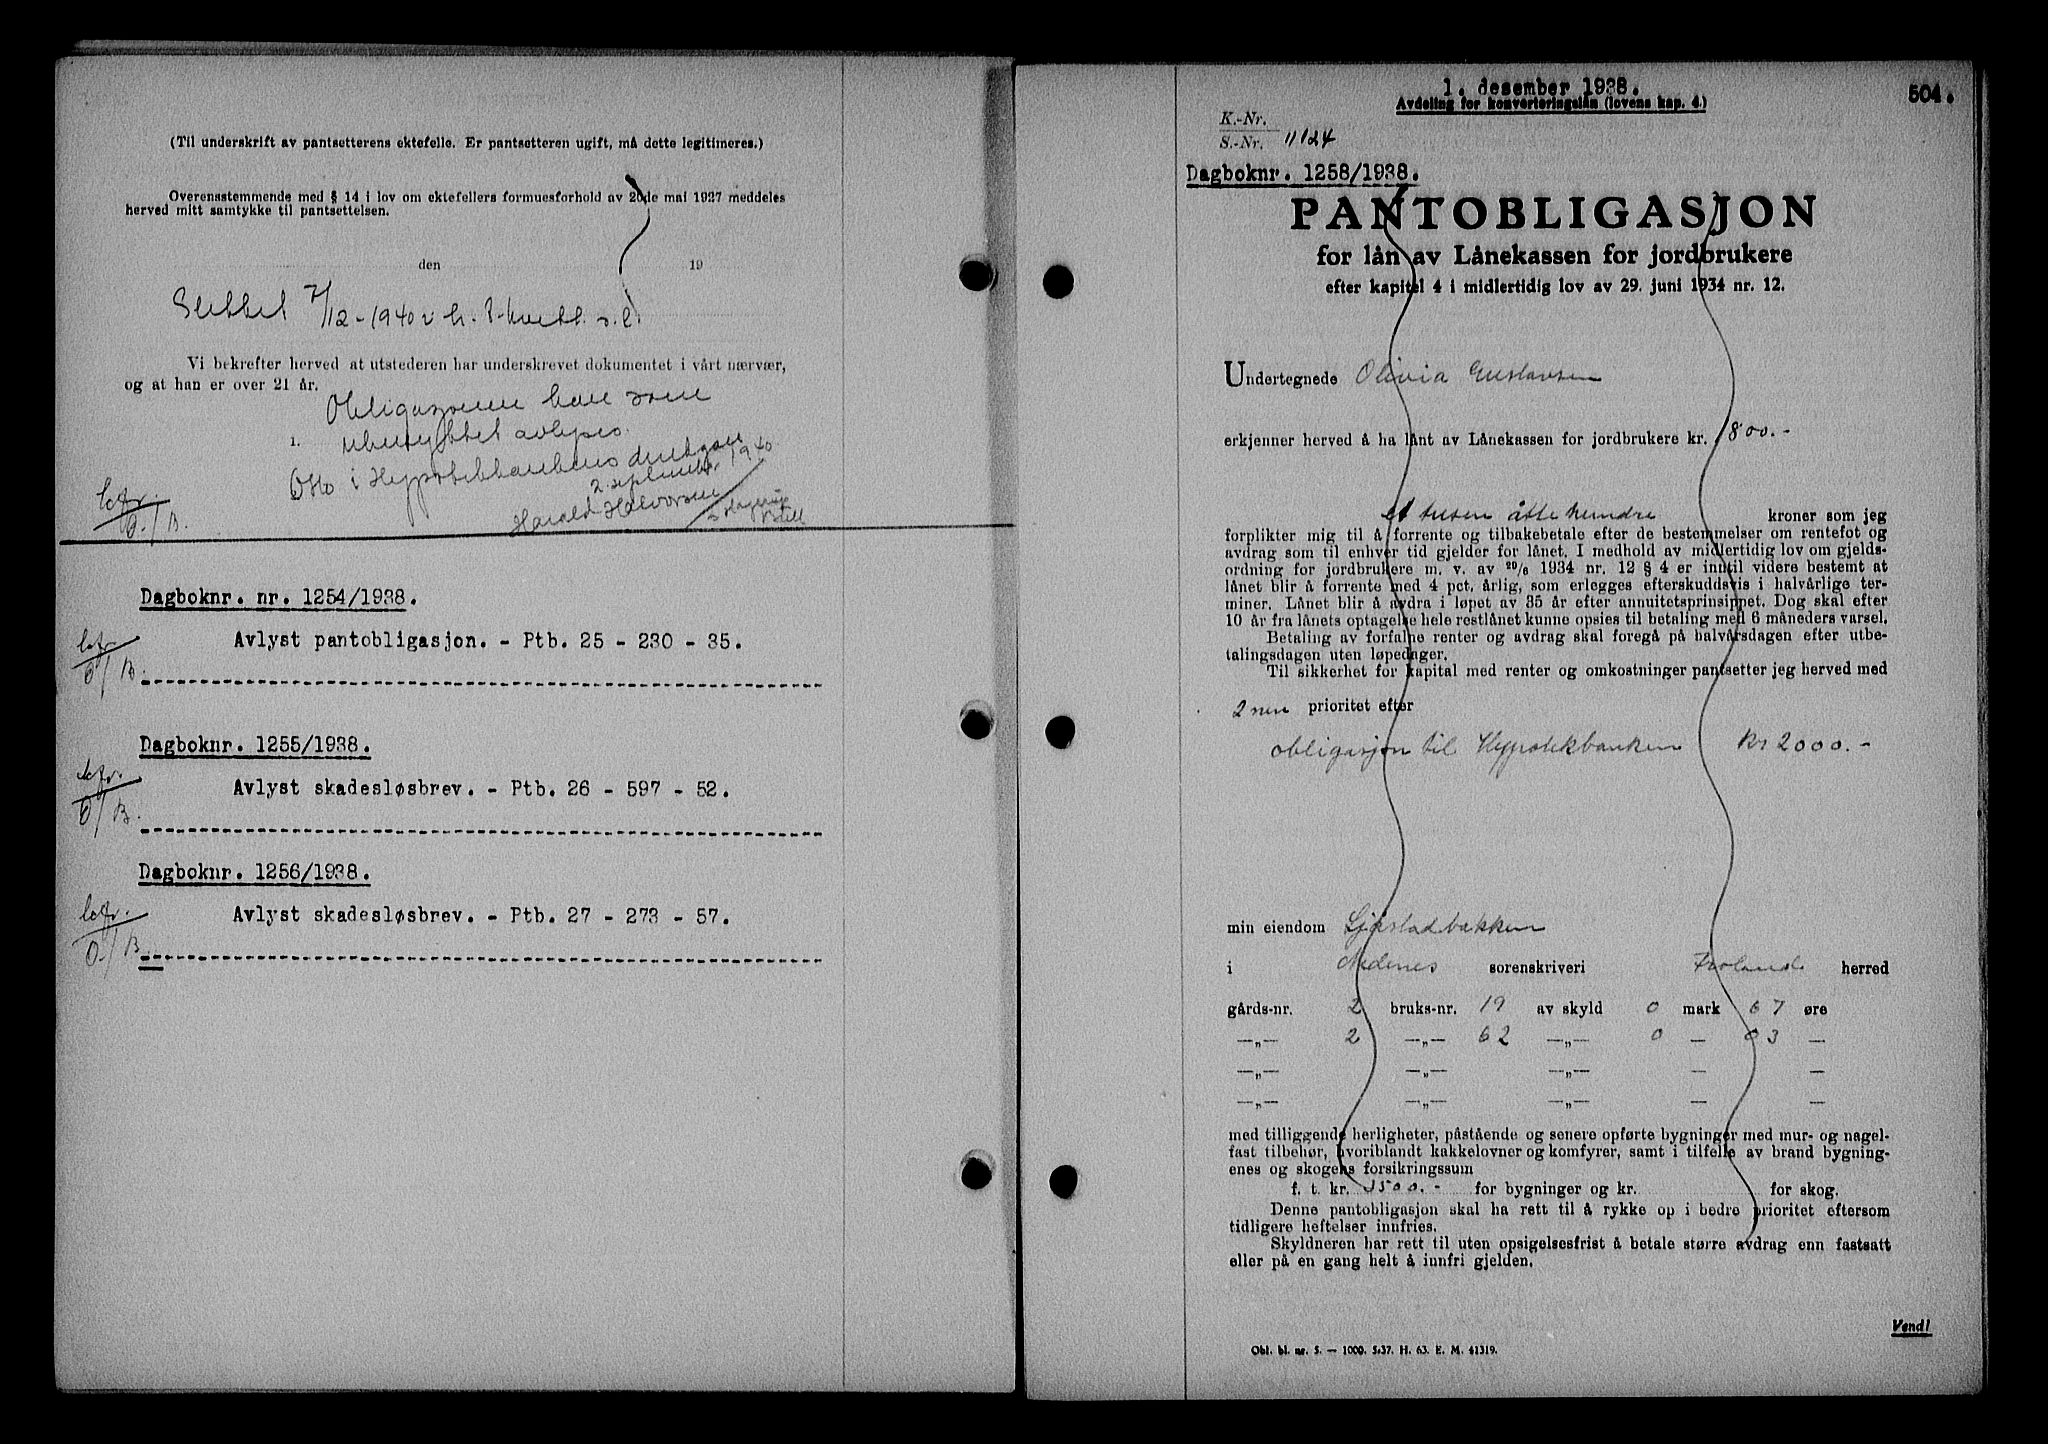 (Til underskrift av pantsetterens ektefelle. Er pantsetteren ugift, må dette legitimeres.)
Overensstemmende med § 14 i lov om ektefellers formuesforhold av 20de mai 1927 meddeles
herved mitt samtykke til pantsettelsen.
den 19
Slettet 7/12-1940 v h.
Vi bekrefter herved at utstederen har underskrevet dokumentet i vårt nærvær,
og at han er over 21 år.
Obligasjonen kan som
1. ubenyttet avlyses.
Oslo i Hypotekbankens direksjon
2. september 1940
Harald Halvorsen
Dagboknr. nr. 1254/1938.
Avlyst pantobligasjon. - Ptb. 25 - 230 - 35.
Dagboknr. 1255/1938.
Avlyst skadesløsbrev. - Ptb. 26 - 597 - 52.
Dagboknr. 1256/1938.
Avlyst skadesløsbrev. - Ptb. 27 - 273 - 57.
1. desember 1938.
504.
Avdeling for konverteringslån (lovens kap. 4.)
K.-Nr.
S.-Nr. 11124
Dagboknr. 1258/1938.
PANTOBLIGASJON
for lån av Lånekassen for jordbrukere
efter kapitel 4 i midlertidig lov av 29. juni 1934 nr. 12.
Undertegnede Olivia Gustavsen
erkjenner herved å ha lånt av Lånekassen for jordbrukere kr. 1800.-
et tusen åtte hundre kroner som jeg
forplikter mig til å forrente og tilbakebetale efter de bestemmelser om rentefot og
avdrag som til enhver tid gjelder for lånet. I medhold av midlertidig lov om gjelds-
ordning for jordbrukere m. v. av 29/6 1934 nr. 12 § 4 er inntil videre bestemt at
lånet blir å forrente med 4 pct. årlig, som erlegges efterskuddsvis i halvårlige ter-
miner. Lånet blir å avdra i løpet av 35 år efter annuitetsprinsippet. Dog skal efter
10 år fra lånets optagelse hele restlånet kunne opsies til betaling med 6 måneders varsel.
Betaling av forfalne renter og avdrag skal foregå på halvårsdagen efter utbe-
talingsdagen uten løpedager.
Til sikkerhet for kapital med renter og omkostninger pantsetter jeg herved med
2nen prioritet efter
obligasjon til Hypotekbanken kr 2000.-
min eiendom Sjøstadbakken
i Nedenes sorenskriveri Froland herred
gårds-nr. 2 bruks-nr. 19 av skyld 0 mark 67 øre
—„— 2 —„— 62 —„— 0 — 03 —
—„— —„— —„— — —
—„— —„— —„— — —
med tilliggende herligheter, påstående og senere opførte bygninger med mur- og nagel-
fast tilbehør, hvoriblandt kakkelovner og komfyrer, samt i tilfelle av brand bygning-
enes og skogens forsikringssum
f. t. kr. 3500.- for bygninger og kr. for skog.
Denne pantobligasjon skal ha rett til å rykke op i bedre prioritet eftersom
tidligere heftelser innfries.
Skyldneren har rett til uten opsigelsesfrist å betale større avdrag enn fastsatt
eller på en gang helt å innfri gjelden.
Vend!
Obl. bl. nr. 5. — 1000. 5-37. H. 63. E. M. 41319.